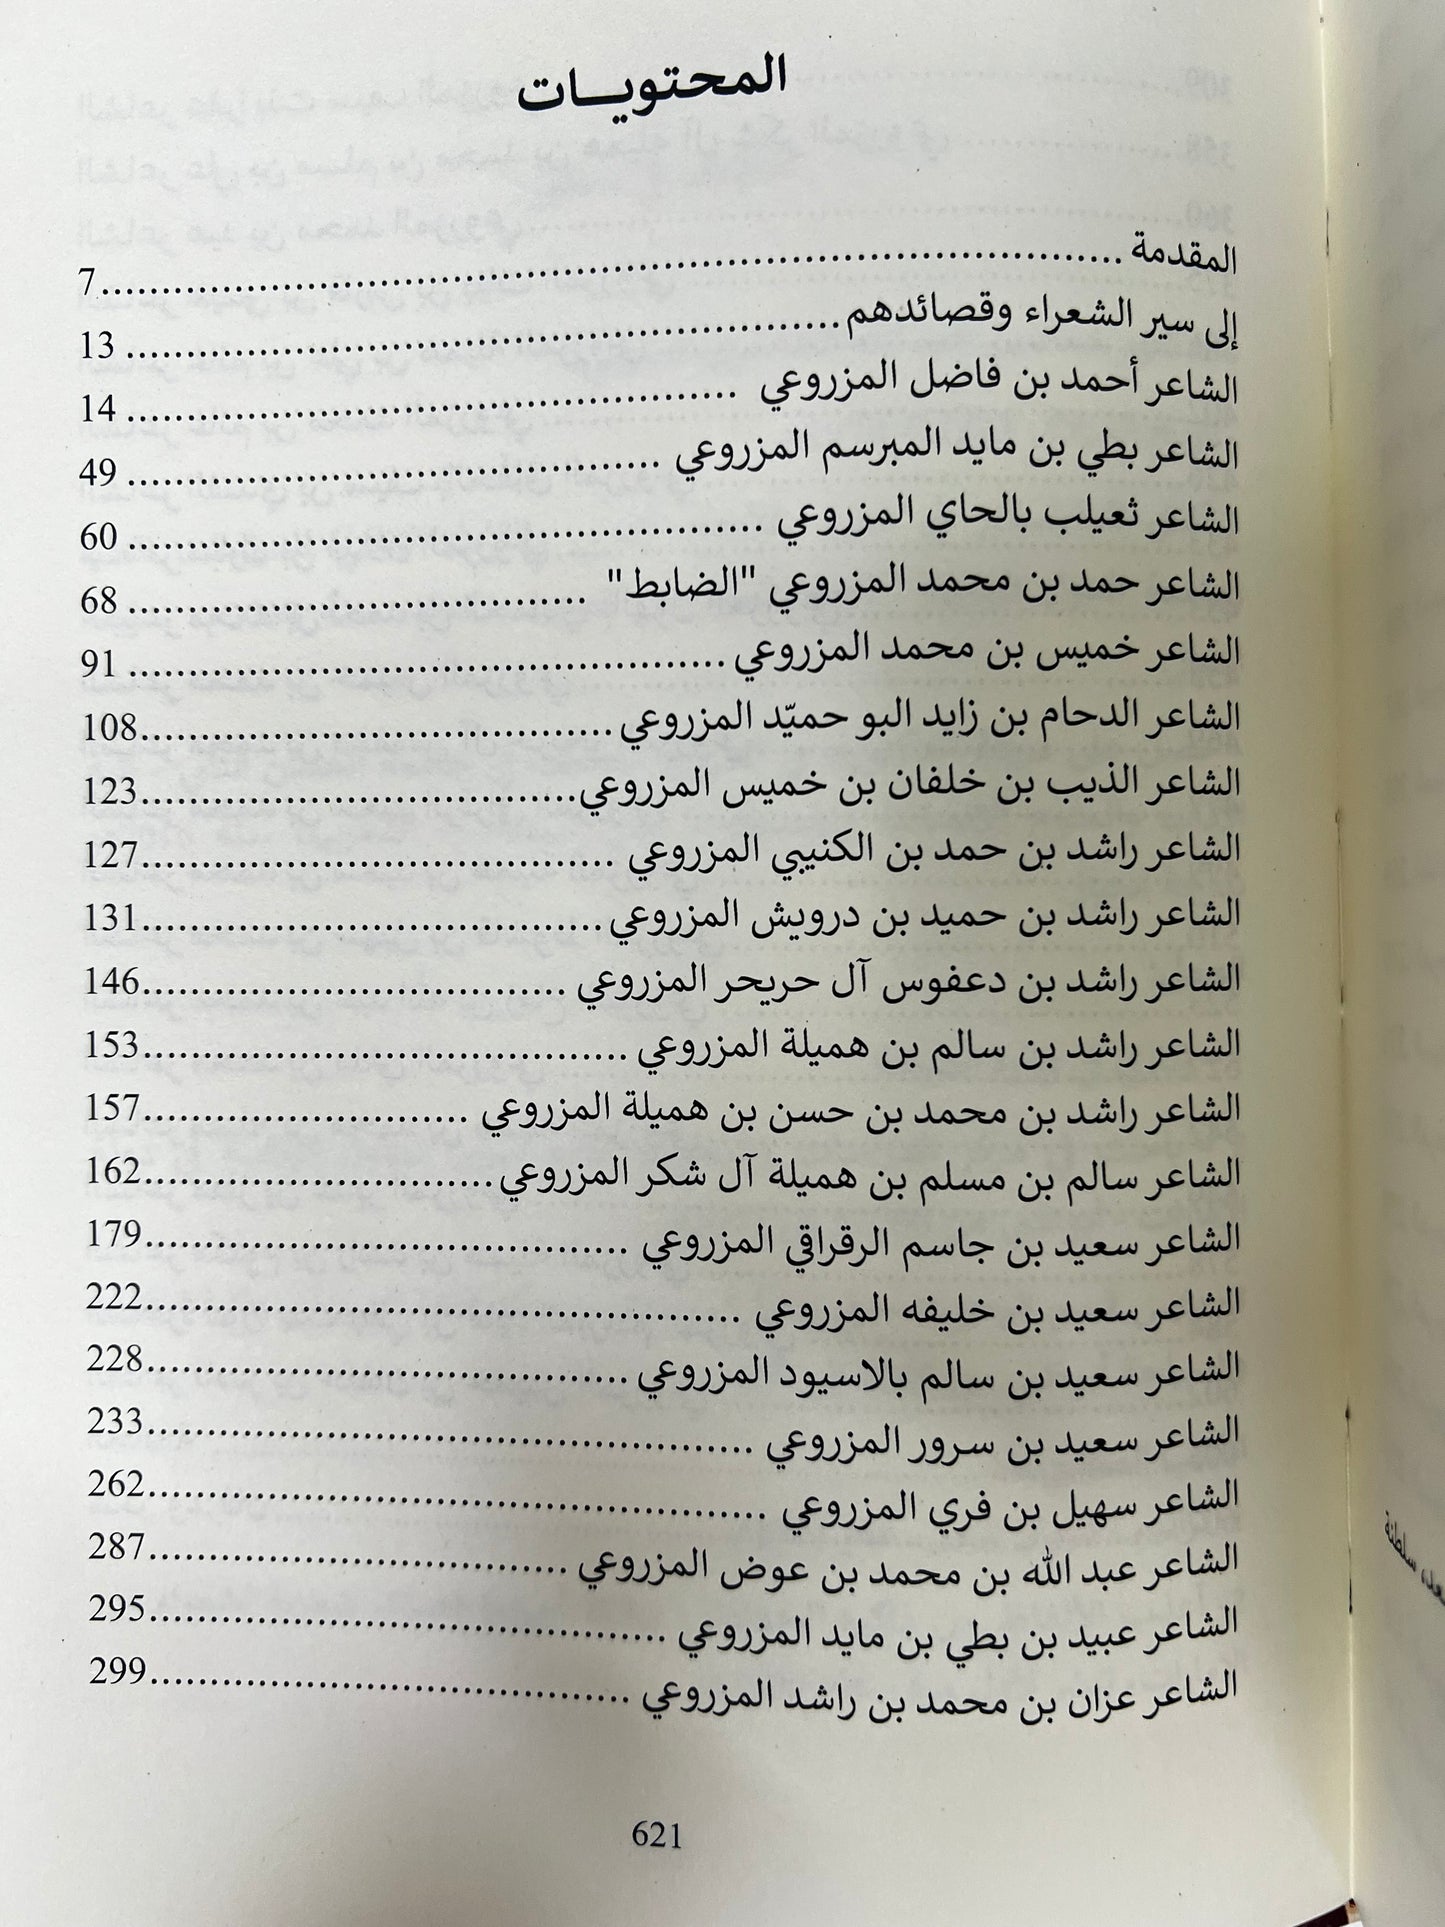 المحتويـــات
المقدمة ........................................ 7
إلى سير الشعراء وقصائدهم ........................................ 13
الشاعر أحمد بن فاضل المزروعي ........................................ 14
الشاعر بطي بن مايد المبرسم المزروعي ........................................ 49
الشاعر ثعيلب بالحاي المزروعي ........................................ 60
الشاعر حمد بن محمد المزروعي "الضابط" ........................................ 68
الشاعر خميس بن محمد المزروعي ........................................ 91
الشاعر الدحام بن زايد البو حميّد المزروعي ........................................ 108
الشاعر الذيب بن خلفان بن خميس المزروعي ........................................ 123
الشاعر راشد بن حمد بن الكنيبي المزروعي ........................................ 127
الشاعر راشد بن حميد بن درويش المزروعي ........................................ 131
الشاعر راشد بن دعفوس آل حريحر المزروعي ........................................ 146
الشاعر راشد بن سالم بن هميلة المزروعي ........................................ 153
الشاعر راشد بن محمد بن حسن بن هميلة المزروعي ........................................ 157
الشاعر سالم بن مسلم بن هميلة آل شكر المزروعي ........................................ 162
الشاعر سعيد بن جاسم الرقراقي المزروعي ........................................ 179
الشاعر سعيد بن خليفه المزروعي ........................................ 222
الشاعر سعيد بن سالم بالاسيود المزروعي ........................................ 228
الشاعر سعيد بن سرور المزروعي ........................................ 233
الشاعر سهيل بن فري المزروعي ........................................ 262
الشاعر عبد الله بن محمد بن عوض المزروعي ........................................ 287
الشاعر عبيد بن بطي بن مايد المزروعي ........................................ 295
الشاعر عزان بن محمد بن راشد المزروعي ........................................ 299
621
سلطنة